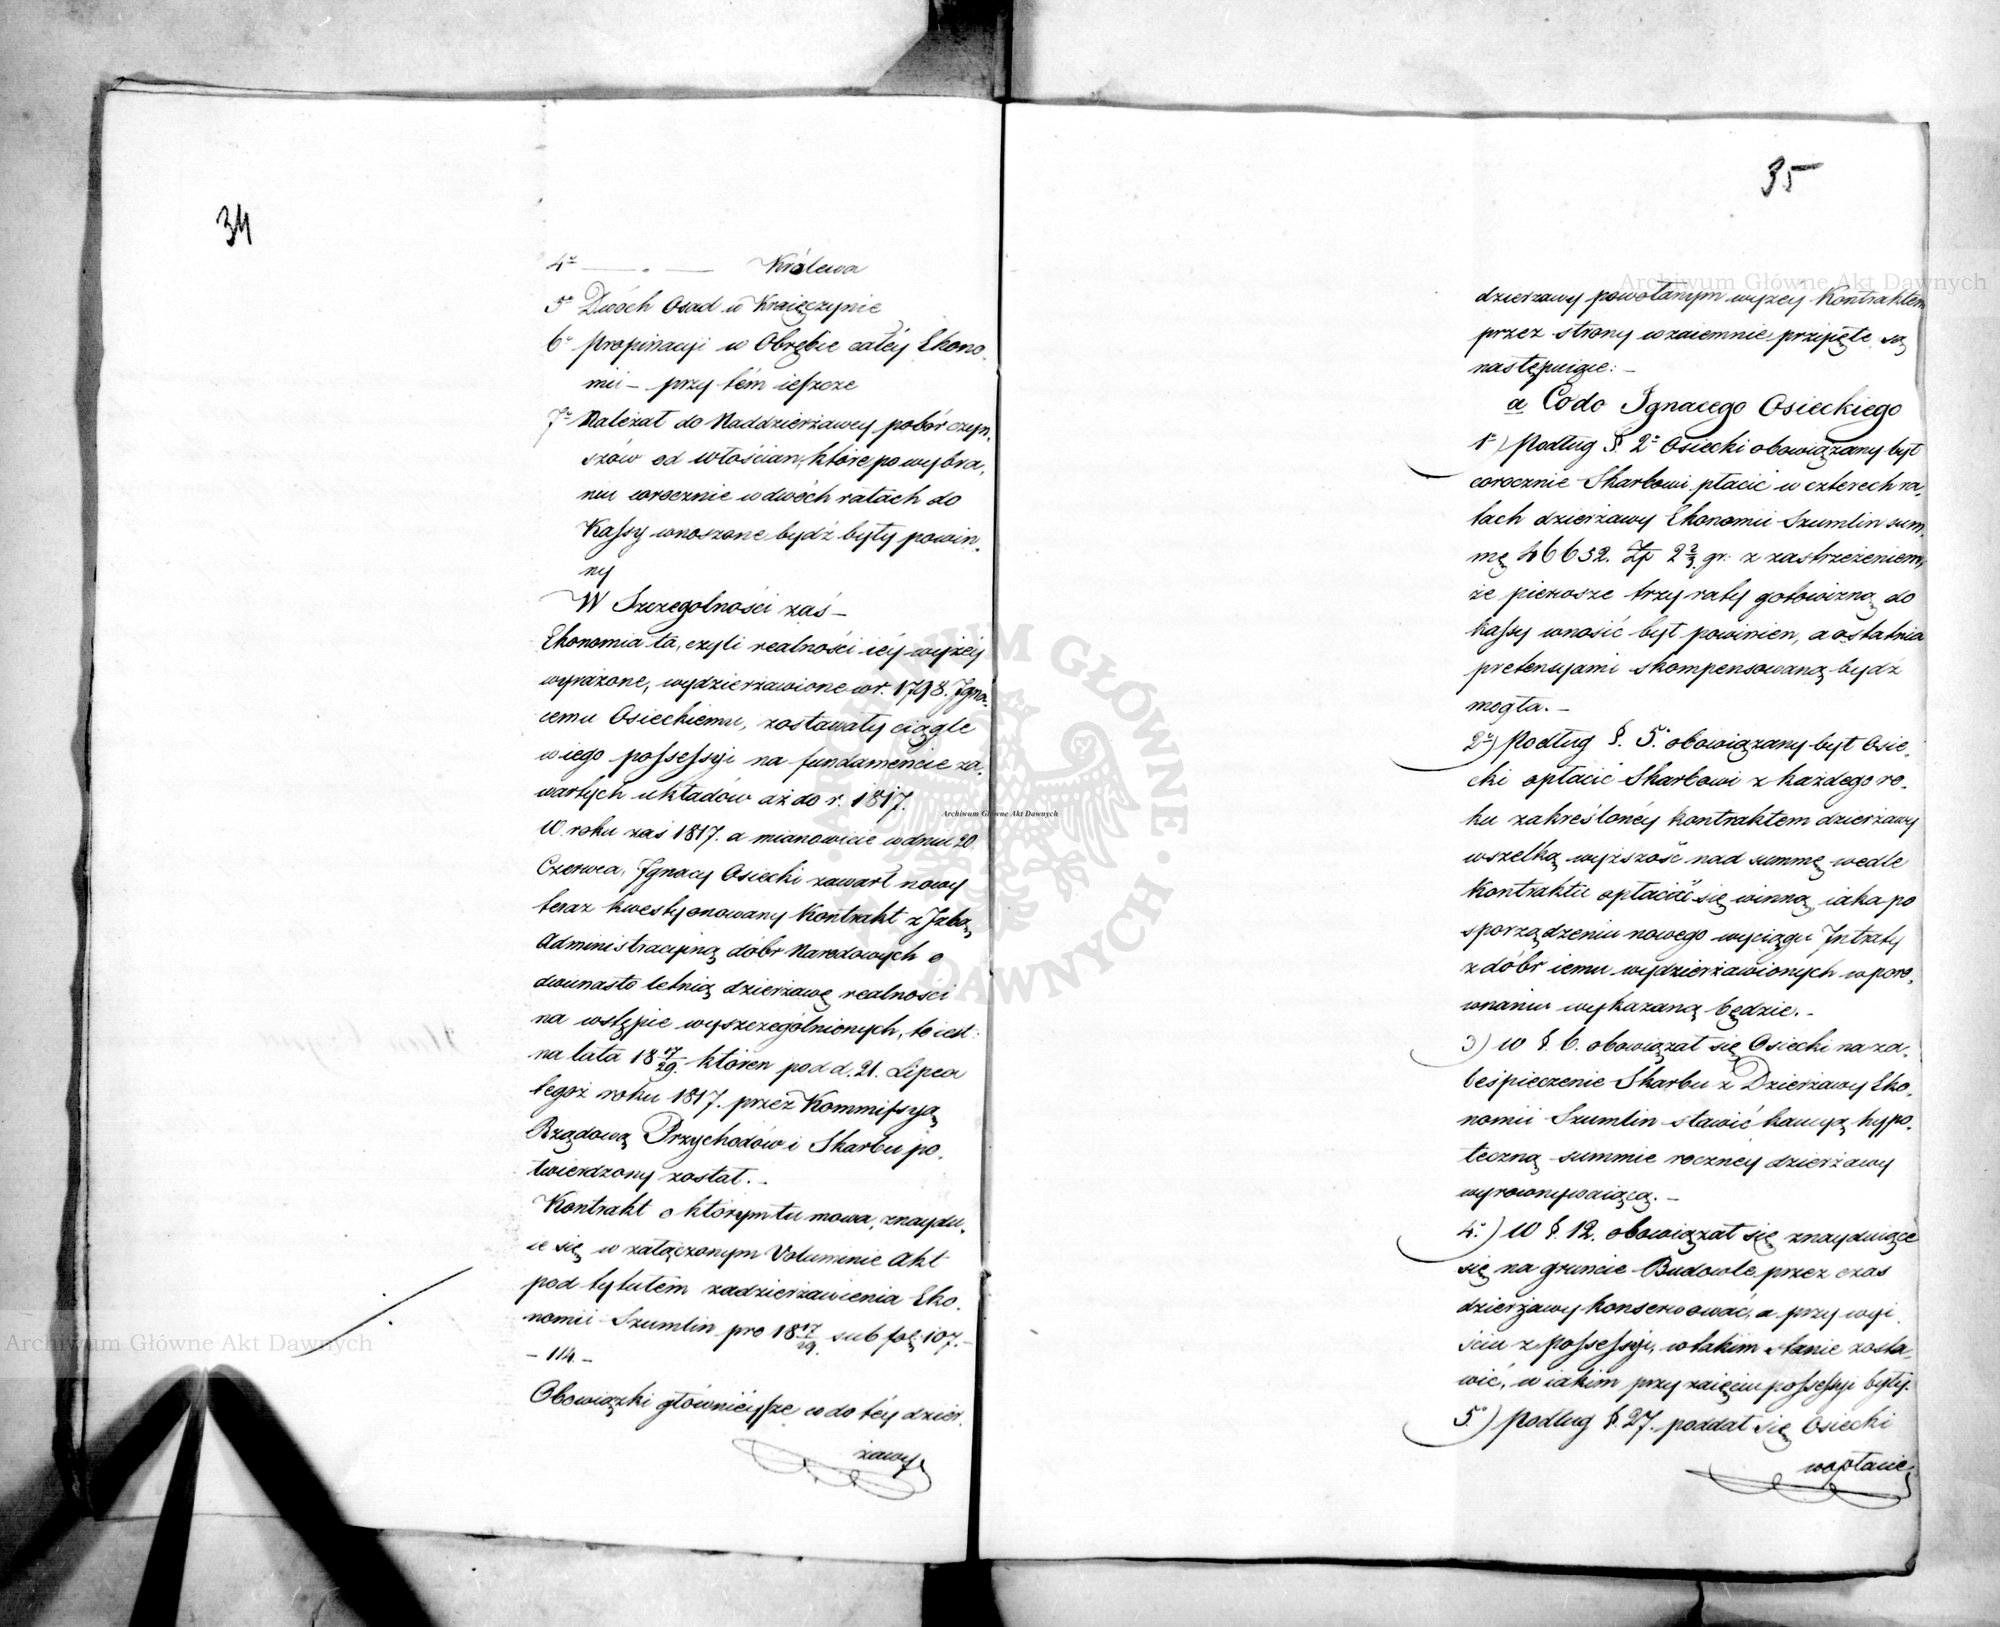 34
4º — „ — Królewa
5º Dwóch Osad w Kraięczynie
6º Propinacyi w Obrębie całéy Ekono-
mii — przy tém ieszcze
7º Należał do Naddzierżawcy pobór czyn-
szów od włościan, które po wybra-
niu corocznie w dwóch ratach do
Kassy wnoszone bydź były powin-
ny
W Szczegolności zaś —
Ekonomia ta, czyli realności iéy wyżéy
wyrażone, wydzierżawione w r. 1798. Igna-
cemu Osieckiemu, zostawały ciągle
w iego possessyi na fundamencie za-
wartych układów aż do r. 1817.
W roku zaś 1817. a mianowicie w dniu 20
Czerwca, Ignacy Osiecki zawarł nowy
teraz kwestyonowany Kontrakt z Izbą
Administracyiną dóbr Narodowych o
dwunasto letnią dzierżawę realnosci
na wstępie wyszczególnionych, to iest:
na lata 18 17/29. któren pod d. 21. Lipca
tegoż roku 1817. przez Kommissyą
Rządową Przychodów i Skarbu po-
twierdzony został. –
Kontrakt o którym tu mowa, znaydu-
ie się w załączonym Voluminie Akt
pod tytułem zadzierżawienia Eko-
nomii Szumlin pro 18 17/29. sub fol: 107. –
– 114. –
Obowiązki główniéysze co do téy dzier-
żawy
35
dzierżawy powołanym wyżey Kontraktem
przez strony wzaiemnie przyięte, są
następuiące: –
a Co do Ignacego Osieckiego
1º) Podług §. 2º Osiecki obowiązany był
corocznie Skarbowi płacić w czterech ra-
tach dzierżawy Ekonomii Szumlin sum-
mę 46652. Zp 2 2/3. gr: z zastrzeżeniem,
że pierwsze trzy raty gotowizną do
kassy wnosić był powinien, a ostatnia
pretensyami skompensowaną bydź
mogła. –
2º) Podług §. 5º obowiązany był Osie-
cki opłacić Skarbowi z każdego ro-
ku zakreślonéy kontraktem dzierżawy
wszelką wyższość nad summę wedle
Kontraktu opłacać się winną, iaka po
sporządzeniu nowego wyciągu Intraty
z dóbr iemu wydzierżawionych w poro-
wnaniu wykazaną będzie. –
3) W §. 6. obowiązał się Osiecki na za-
beśpieczenie Skarbu z Dzierżawy Eko-
nomii Szumlin stawić kaucyą hypo-
teczną summie roczney dzierżawy
wyrownywaiącą. –
4º) W §. 12. obowiązał się znayduiące
się na gruncie Budowle przez czas
dzierżawy konserwować, a przy wyi-
ściu z Possessyi, w takim stanie zosta-
wić, w iakim przy zaięciu possessyi były.
5º) Podług §. 27. poddał się Osiecki
Archiwum Główne Akt Dawnych
Archiwum Główne Akt Dawnych
Archiwum Główne Akt Dawnych
ARCHIWUM GŁÓWNE AKT DAWNYCH